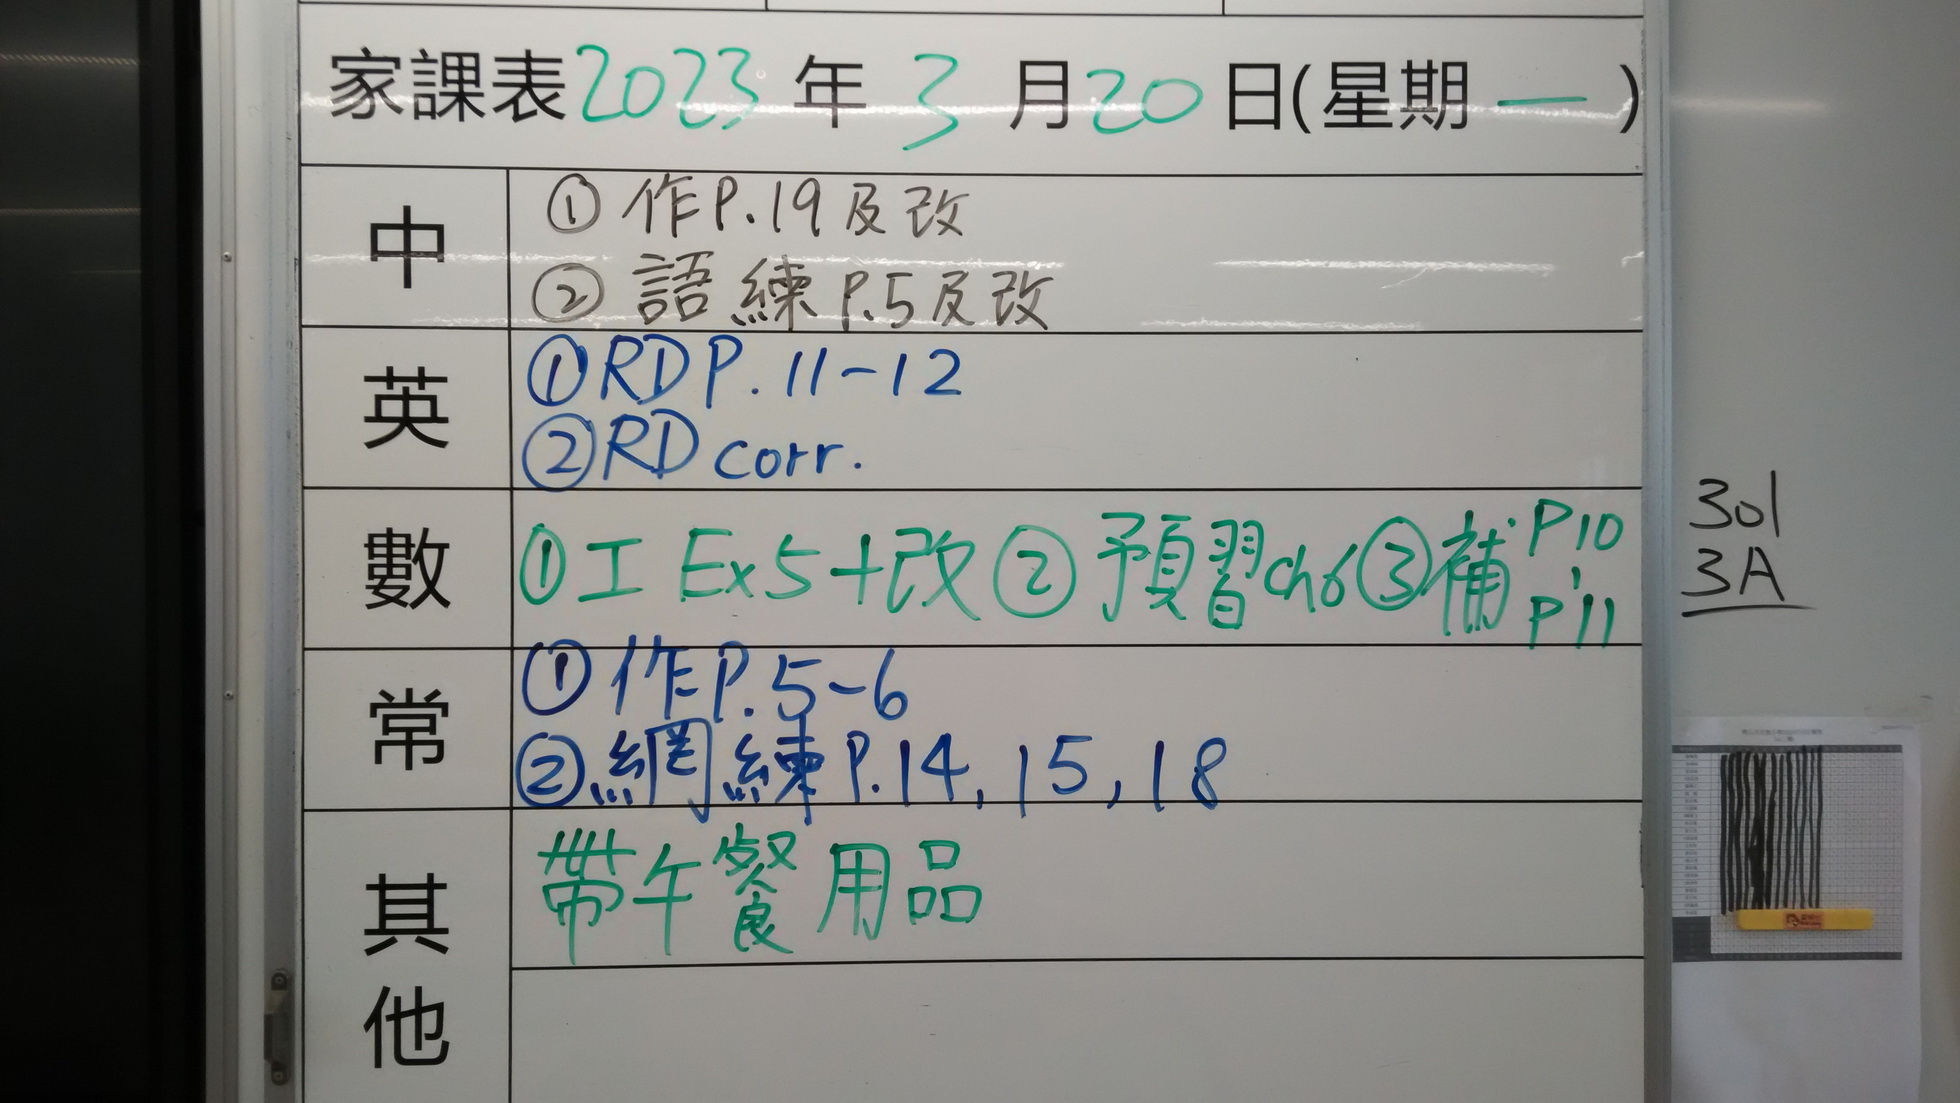 家課表2023年3月20日(星期一)
中
①作P.19及改
②語練P.5及改
英
①RD P.11-12
②RD corr.
數
①工Ex5+改②預習ch6③補P10, P11
常
①作P.5-6
②網練P.14,15,18
其他
帶午餐用品
301
3A